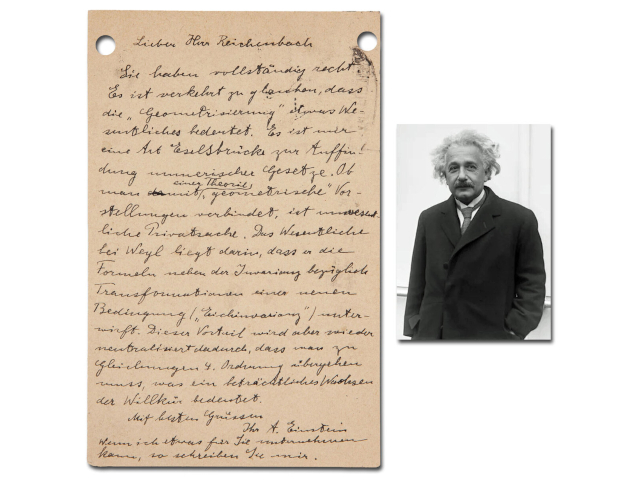 Lieber Herr Reichenbach
Sie haben vollständig recht.
Es ist verkehrt zu glauben, dass
die „Geometrisierung" etwas We-
sentliches bedeutet. Es ist nur
eine Art Eselsbrücke zur Auffin-
dung numerischer Gesetze. Ob
man mit einer Theorie „geometrische" Vor-
stellungen verbindet, ist
liche Privatsache. Das Wesentliche
bei Weyl liegt darin, dass er die
Formeln neben der Invarianz bezüglich
Transformationen einer neuen
Bedingung („Eichinvarianz") unter-
wirft. Dieser Vorteil wird aber wieder
neutralisiert dadurch, dass man zu
Gleichungen 4. Ordnung übergehen
muss, was ein beträchtliches Wachsen
der Willkür bedeutet.
Mit besten Grüssen
Ihr A. Einstein
Wenn ich etwas für Sie unternehmen
kann, so schreiben Sie mir.